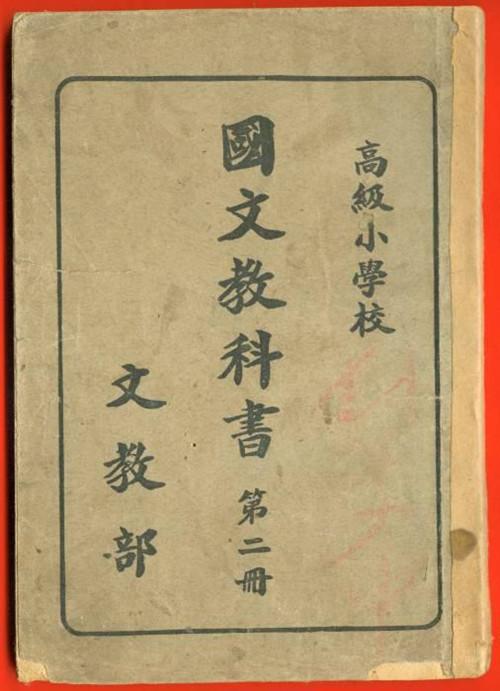 高級小學校
國文教科書 第二冊
文教部